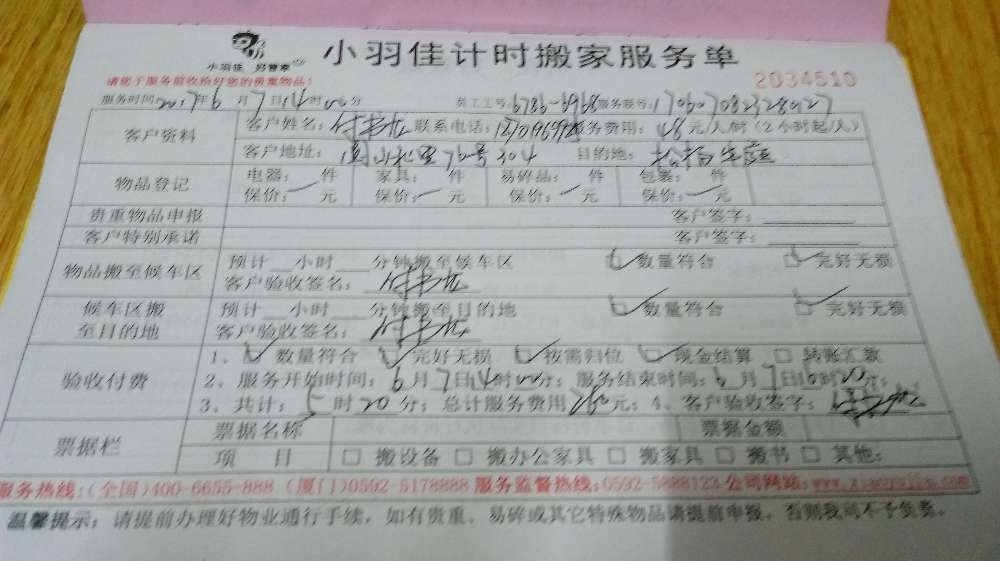 小羽佳计时搬家服务单
小羽佳 好管家
2034510
请您于服务前收检好您的贵重物品!
服务时间:2017年6月7日14时00分 员工工号:6786-6968 服务账号:
客户资料 客户姓名: 联系电话: 服务费用: 元/人/时(2小时起/人)
客户地址: 76号304 目的地:
物品登记 电器: 件 家具: 件 易碎品: 件 包裹: 件
保价: 元 保价: 元 保价: 元 保价: 元
贵重物品申报 客户签字:
客户特别承诺 客户签字:
物品搬至候车区 预计 小时 分钟搬至候车区 数量符合 完好无损
客户验收签名:
候车区搬至目的地 预计 小时 分钟搬至目的地 数量符合 完好无损
客户验收签名:
验收付费 1、 数量符合 完好无损 按需归位 现金结算 转账汇款
2、服务开始时间:6月7日14时00分;服务结束时间:6月7日16时20分;
3、共计: 时20分;总计服务费用 元;4、客户验收签字:
票据栏 票据名称 票据金额
项 目 搬设备 搬办公家具 搬家具 搬书 其他:
服务热线:(全国)400-6655-888 (厦门)0592-5178888 服务监督热线:0592-5888123 公司网站:
温馨提示:请提前办理好物业通行手续,如有贵重、易碎或其它特殊物品请提前申报,否则我司不予负责。